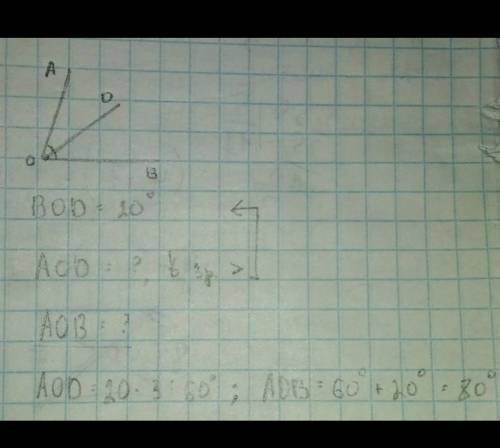 A
D
O
B
BOD = 20°
AOD = ?, в 3р >
AOB = ?
AOD = 20 · 3 = 60° ; AOB = 60° + 20° = 80°